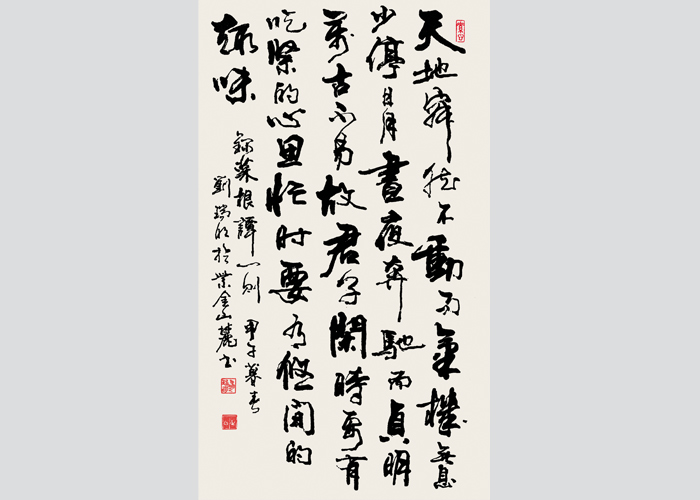 天地寂然不動而氣機無息
少停日月晝夜奔馳而貞明
萬古不易故君子閑時要有
吃緊的心思忙时要有悠閒的
趣味
錄菜根譚一則 甲午暮春
劉瑞於紫金山麓書